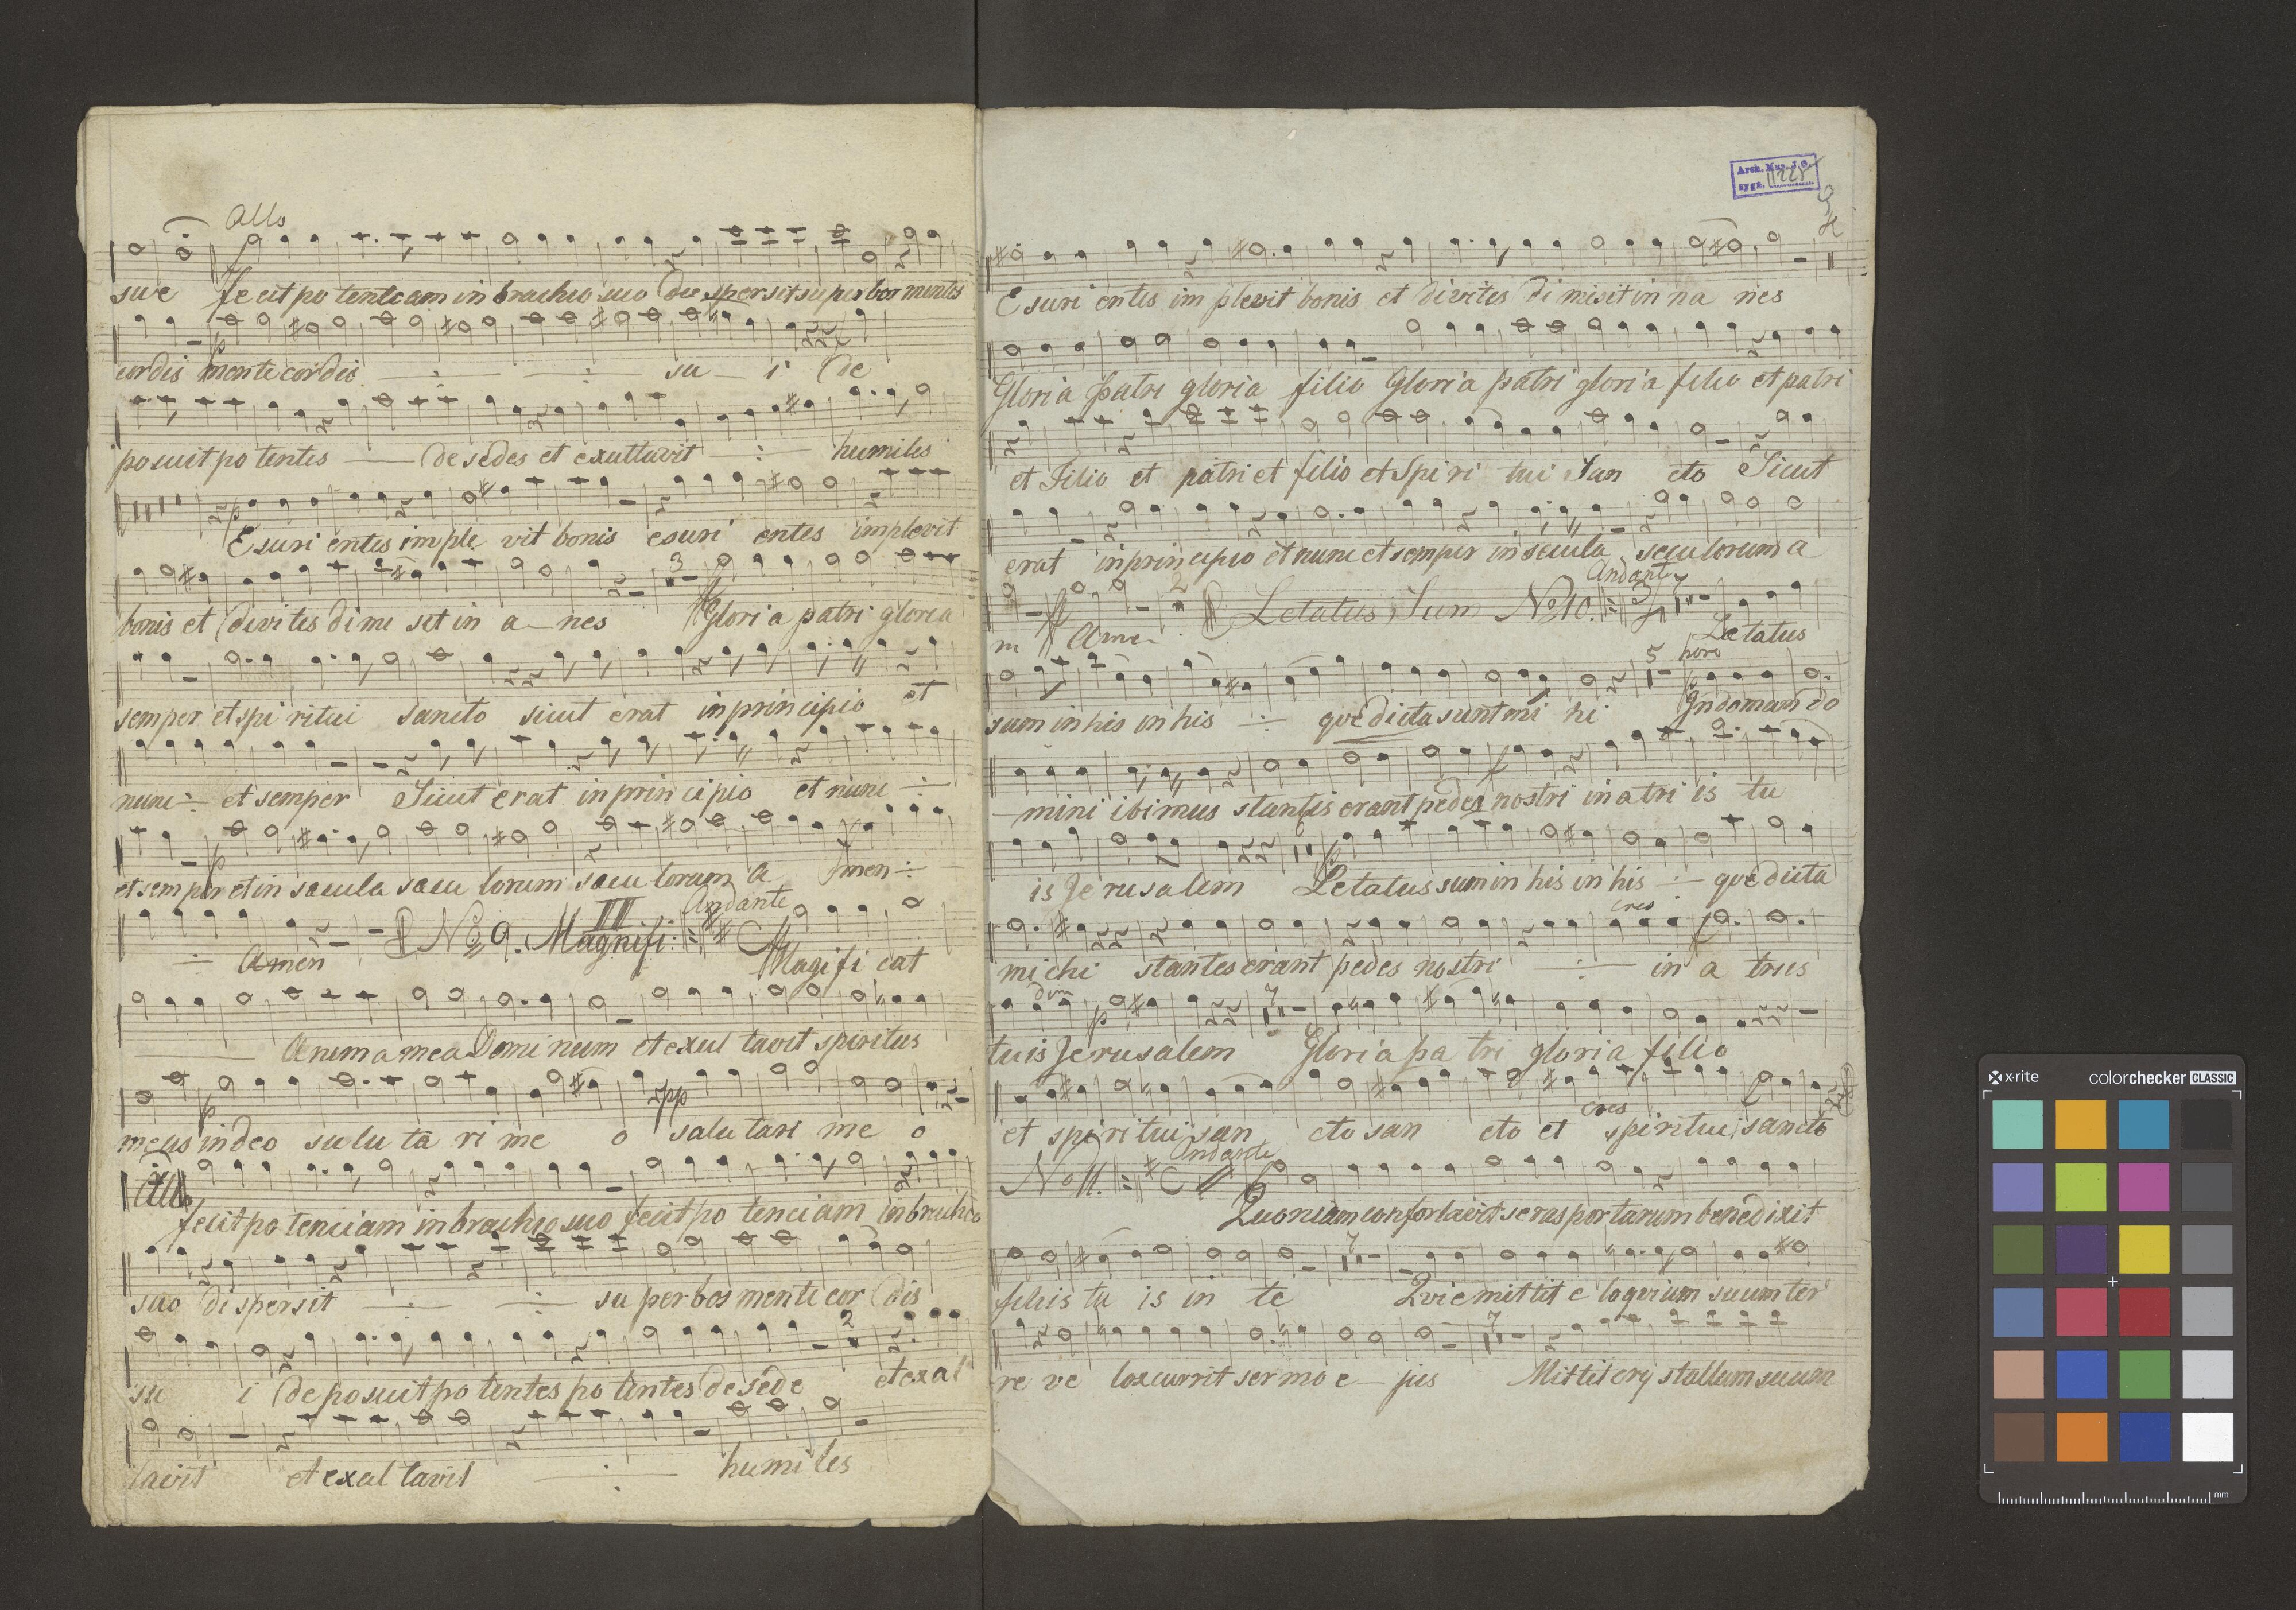 Allo
sue fecit po tentcam in brachio suo die spersit superbor mentis
cordis mente cordis su i de
posuit po tentes de sedes et exultavit humiles
p
Esuri entes imple vit bonis esuri entes implevit
3
bonis et divites dimi sit in a nes Gloria patri gloria
semper et spi ritui sancto sicut erat in principio et
nunc et semper Sicut erat in principio et nunc
et semper et in saecula saecu lorum saecu lorum a Amen
Andante
No 9. Magnifi: II
Amen Magifi cat
Anima mea Domi num et exul tavit spiritus
p pp
meus in deo salu ta ri me o salu tari me o
Allo
fecit po tenciam in brachio suo fecit po tenciam in brachio
suo dispersit su perbos mente cor dis
2
su i deposuit po tentes po tentes de sede et exal
tavit et exal tavit humiles
Arch. Mus. J. G.
sygn. 11225
Esuri entes im plevit bonis et divites di misit in na nes
Gloria patri gloria filio Gloria patri gloria filio et patri
et Filio et patri et filio et Spi ri tui San cto Sicut
erat in principio et nunc et semper in secula seculorum a
Andante
2 Letatus Sum No 10. 3/4 7
m Amen Letatus
5 horo
sum in his in his que dicta sunt mi hi In domum do
mini ibimus stantes erant pedes nostri in atri is tu
6 p
is Jerusalem Letatus sum in his in his que dicta
cres
michi stantes erant pedes nostri in a triis
dim p 7
tuis Jerusalem Gloria pa tri gloria filio
cres
et spiritui san cto san cto et spiritui sancto
Andante
No 11. C
Quoniam confortavit seras portarum benedixit
7
filiis tu is in te Qui emittit e loquium suum ter
7
re ve lox currit sermo e jus Mittit crystallum suum
x-rite colorchecker CLASSIC
mm